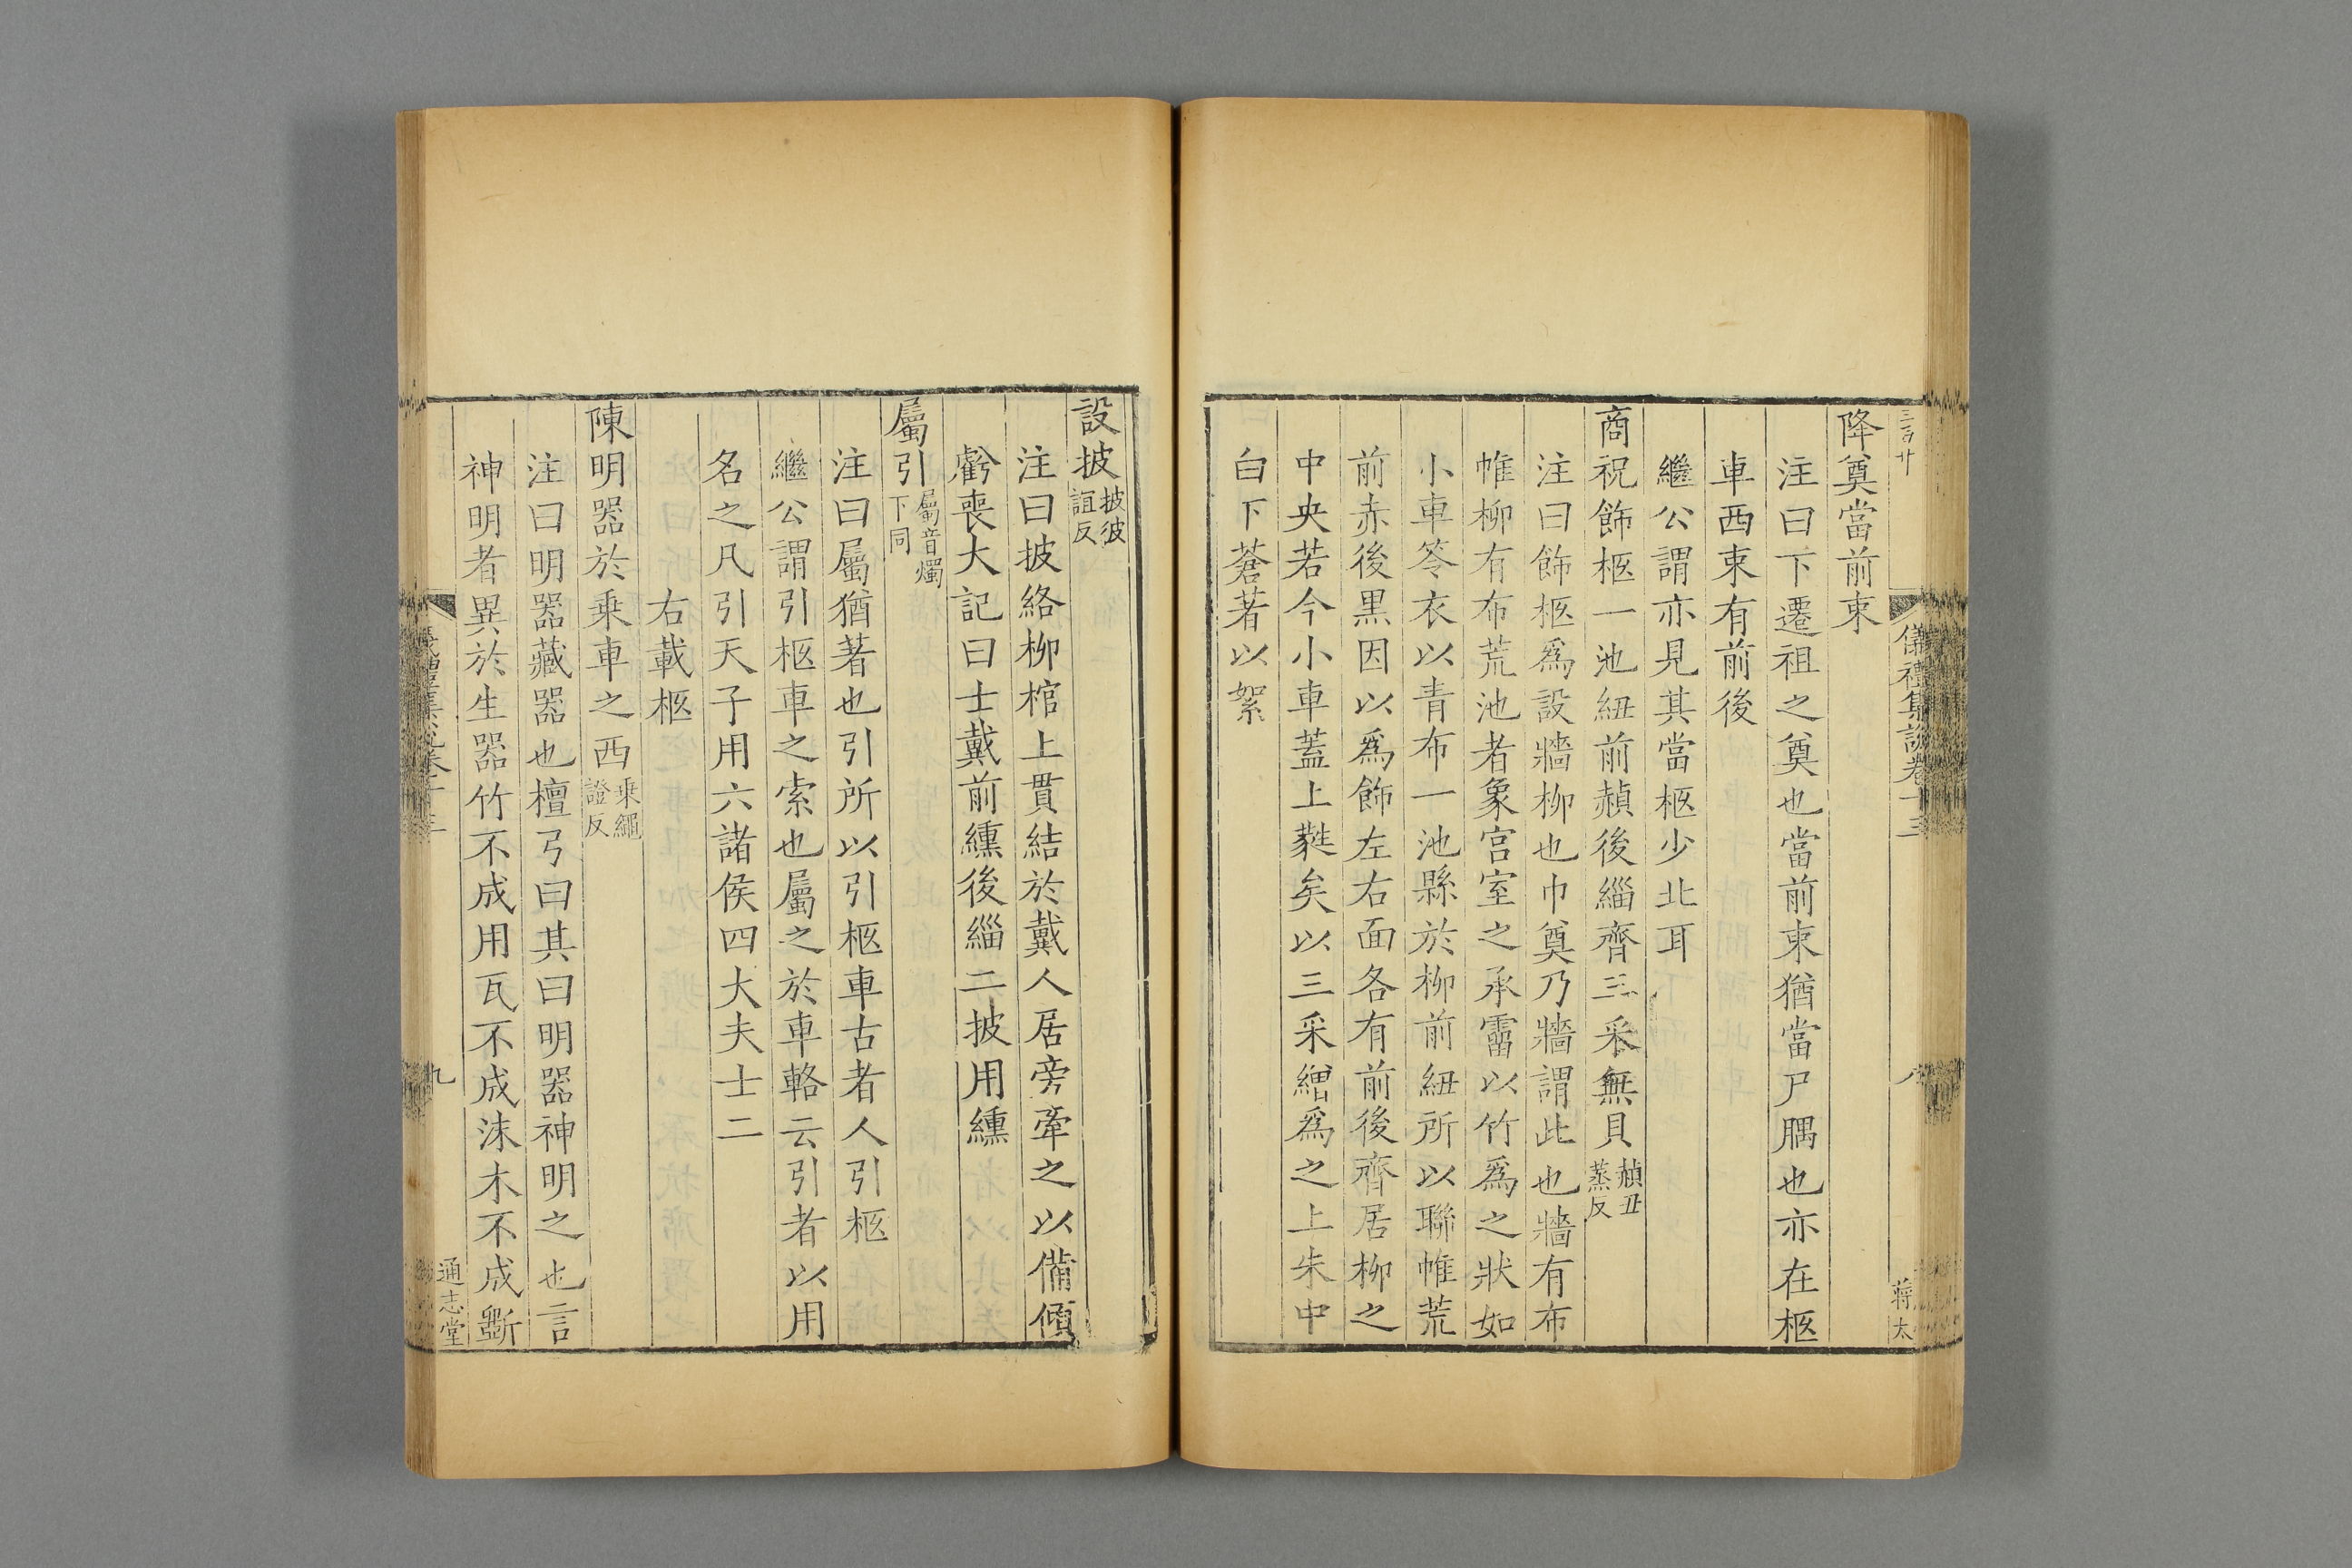 三百廿
儀禮集說卷十三
八
蔣太
降奠當前束
注曰下遷祖之奠也當前束猶當尸腢也亦在柩
車西束有前後
繼公謂亦見其當柩少北耳
商祝飾柩一池紐前赬後緇齊三采無貝赬丑蒸反
注曰飾柩爲設牆柳也巾奠乃牆謂此也牆有布
帷柳有布荒池者象宫室之承霤以竹爲之狀如
小車笭衣以青布一池縣於柳前紐所以聯帷荒
前赤後黒因以爲飾左右面各有前後齊居柳之
中央若今小車蓋上蕤矣以三采繒爲之上朱中
白下蒼著以絮
設披披彼誼反
注曰披絡柳棺上貫結於戴人居旁牽之以備傾
虧喪大記曰士戴前纁後緇二披用纁
屬引屬音燭下同
注曰屬猶著也引所以引柩車古者人引柩
繼公謂引柩車之索也屬之於車輅云引者以用
名之凡引天子用六諸侯四大夫士二
右載柩
陳明器於乗車之西乗繩證反
注曰明器藏器也檀弓曰其曰明器神明之也言
神明者異於生器竹不成用瓦不成沬木不成斲
儀禮集說卷十三
九
通志堂